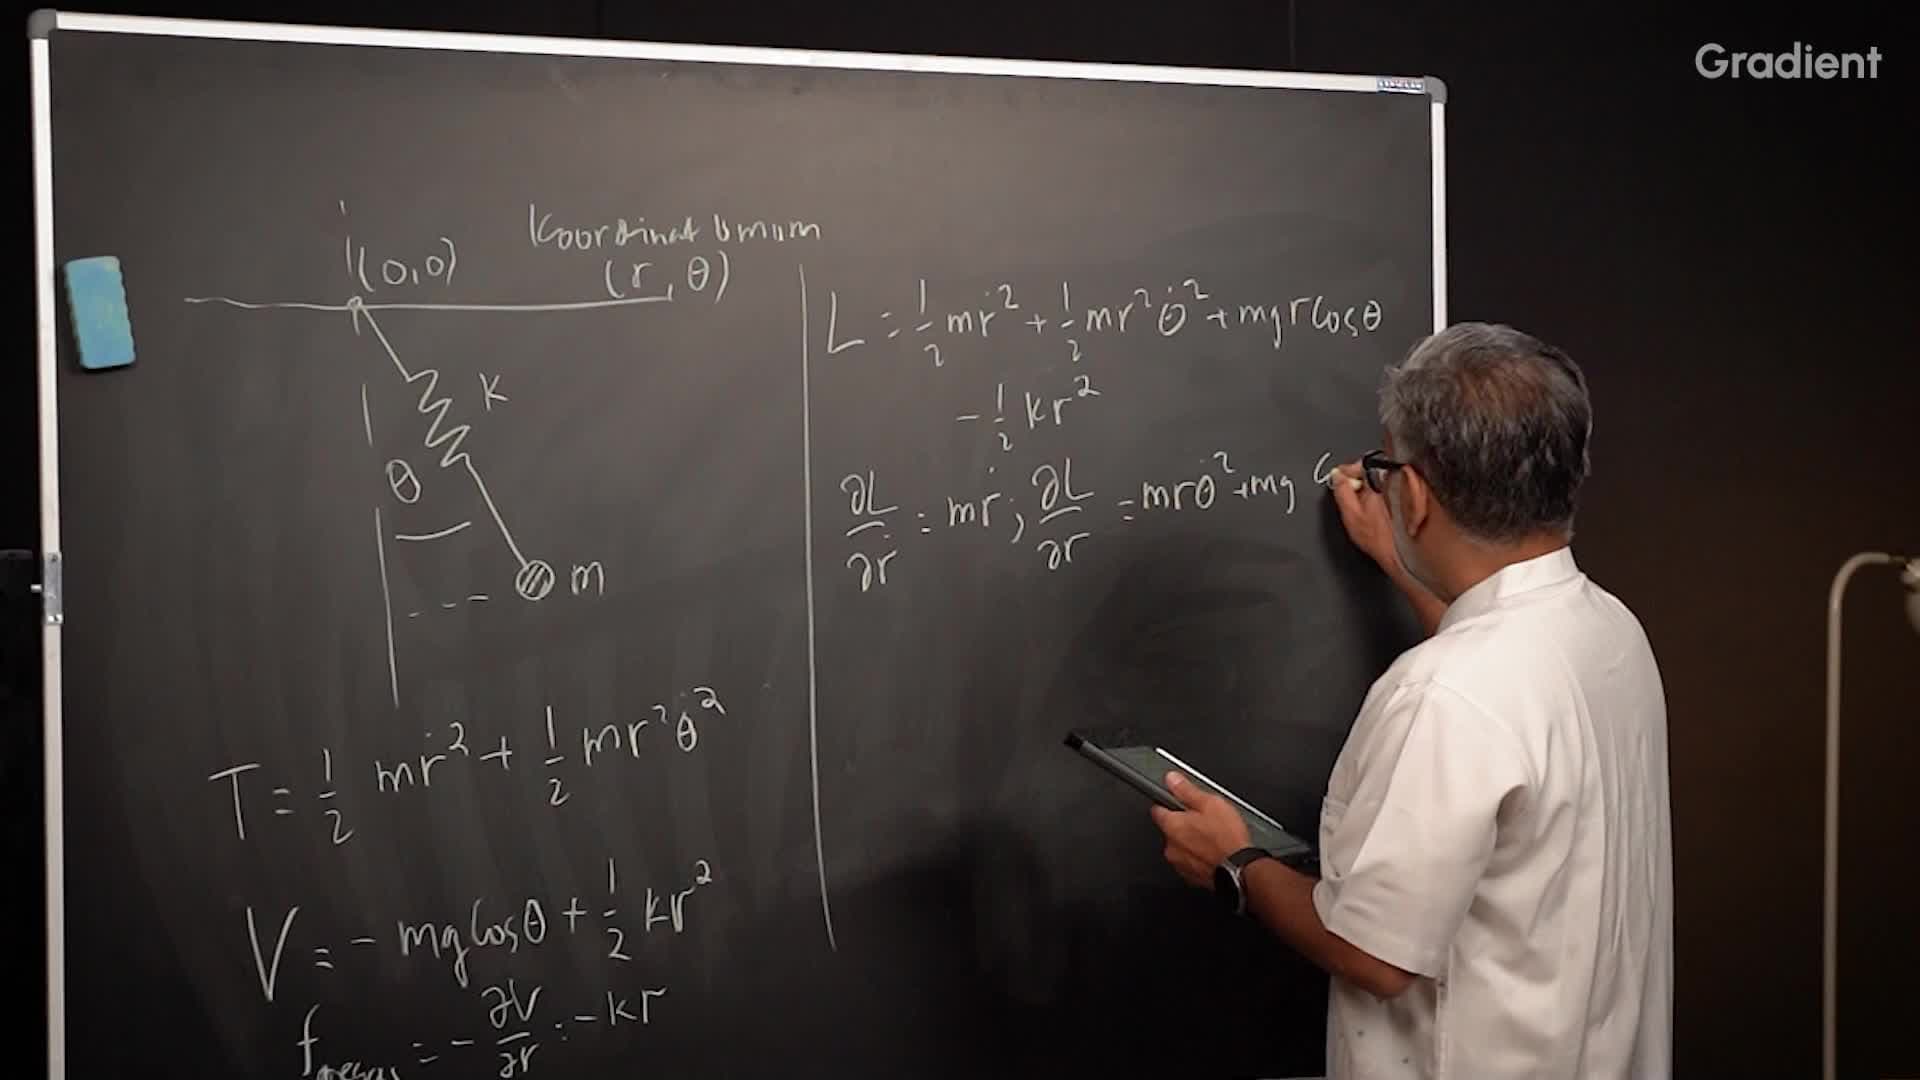 Gradient
(0,0)
Koordinat Umum
(r, θ)
K
θ
m
T = 1/2 mṙ² + 1/2 mr²θ̇²
V = - mg Cosθ + 1/2 kr²
= - ∂V/∂r = - kr
L = 1/2 mṙ² + 1/2 mr²θ̇² + mgr Cosθ
- 1/2 kr²
∂L/∂ṙ = mṙ ; ∂L/∂r = mrθ̇² + mg